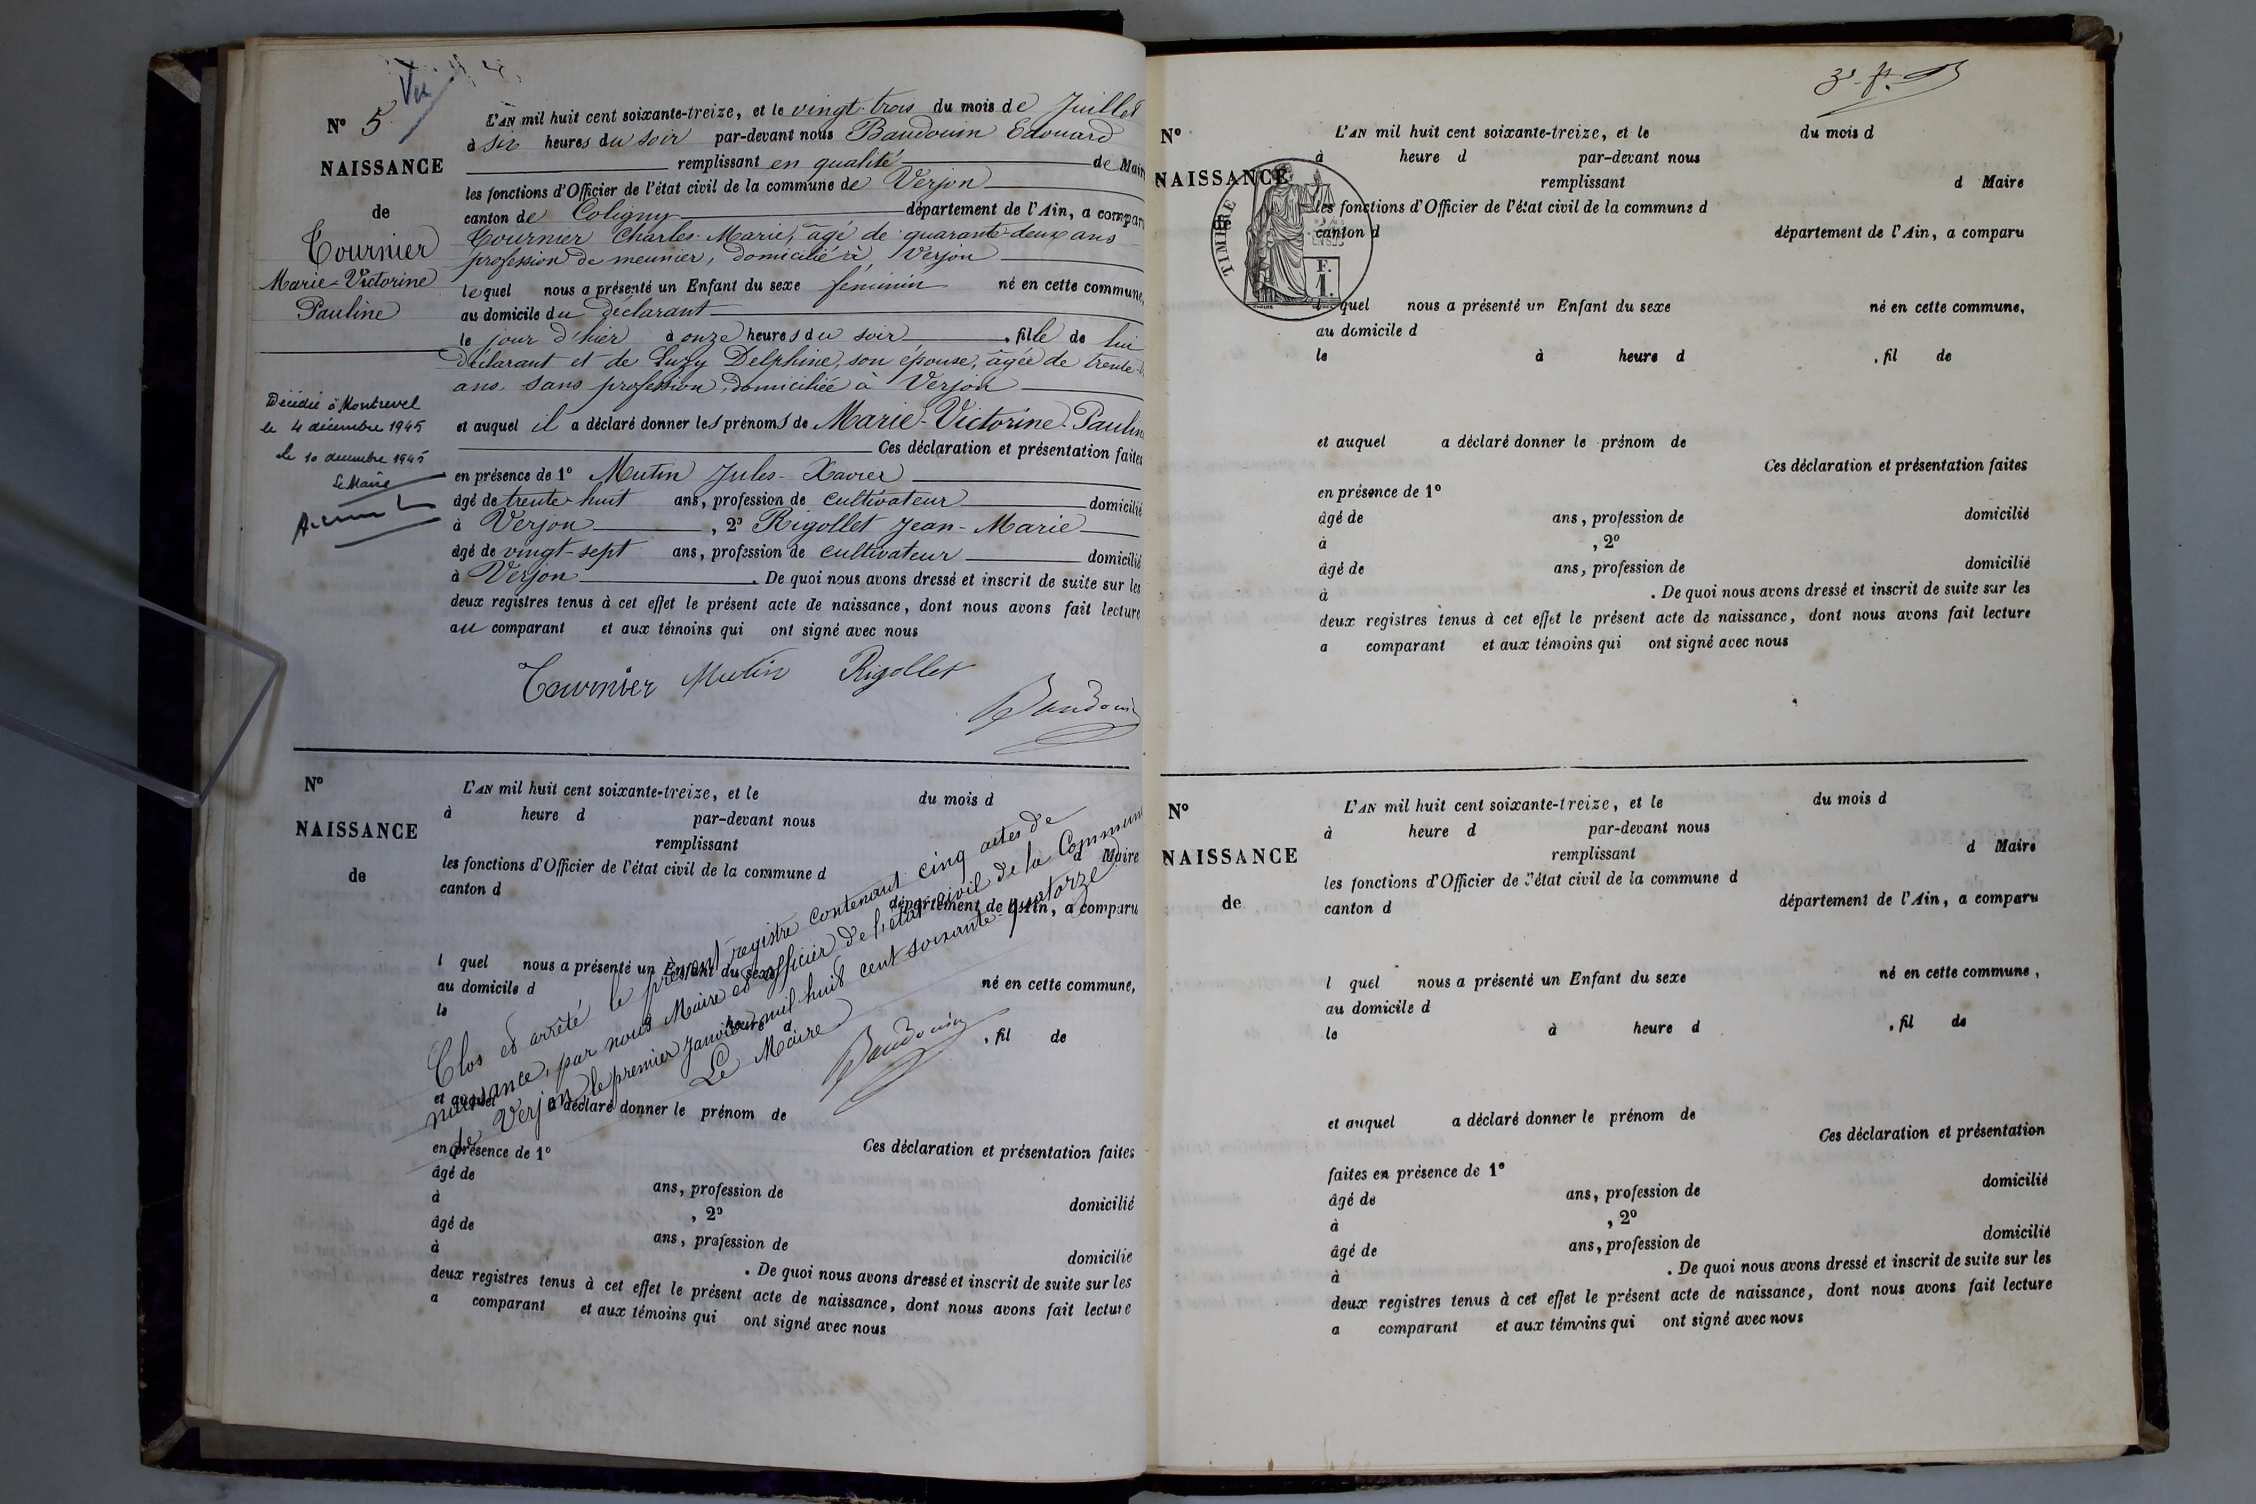 Vu
N° 5
NAISSANCE
de
Tournier
Marie-Victorine
Pauline
Décédée à Montrevel
le 4 décembre 1945
le 10 décembre 1945
Le Maire
L'AN mil huit cent soixante-treize, et le vingt-trois du mois de Juillet
à six heures du soir par-devant nous Baudouin Edouard
remplissant en qualité de Maire
les fonctions d'Officier de l'état civil de la commune de Verjon
canton de Coligny département de l'Ain, a comparu
Tournier Charles-Marie, âgé de quarante-deux ans
profession de meunier, domicilié à Verjon
lequel nous a présenté un Enfant du sexe féminin né en cette commune,
au domicile du déclarant
le jour d'hier à onze heures du soir , fille de lui
déclarant et de Luzy Delphine, son épouse, âgée de trente-
ans sans profession, domiciliée à Verjon
et auquel il a déclaré donner les prénoms de Marie-Victorine-Pauline
Ces déclaration et présentation faites
en présence de 1° Mutin Jules-Xavier
âgé de trente-huit ans, profession de cultivateur domicilié
à Verjon , 2° Rigollet Jean-Marie
âgé de vingt-sept ans, profession de cultivateur domicilié
à Verjon . De quoi nous avons dressé et inscrit de suite sur les
deux registres tenus à cet effet le présent acte de naissance, dont nous avons fait lecture
au comparant et aux témoins qui ont signé avec nous
Tournier Mutin Rigollet
Baudouin
N°
NAISSANCE
de
L'AN mil huit cent soixante-treize, et le du mois d
à heure d par-devant nous
remplissant d Maire
les fonctions d'Officier de l'état civil de la commune d
canton d département de l'Ain, a comparu
l quel nous a présenté un Enfant du sexe né en cette commune,
au domicile d
le à heure d , fil de
et auquel a déclaré donner le prénom de
Ces déclaration et présentation faites
en présence de 1°
âgé de ans, profession de domicilié
à , 2°
âgé de ans, profession de domicilié
à . De quoi nous avons dressé et inscrit de suite sur les
deux registres tenus à cet effet le présent acte de naissance, dont nous avons fait lecture
a comparant et aux témoins qui ont signé avec nous
Clos et arrêté le présent registre contenant cinq actes de
naissance, par nous Maire et officier de l'état civil de la Commune
de Verjon, le premier Janvier mil huit cent soixante-quatorze
Le Maire
Baudouin
N°
NAISSANCE
de
TIMBRE
F.
1.
L'AN mil huit cent soixante-treize, et le du mois d
à heure d par-devant nous
remplissant d Maire
les fonctions d'Officier de l'état civil de la commune d
canton d département de l'Ain, a comparu
l quel nous a présenté un Enfant du sexe né en cette commune,
au domicile d
le à heure d , fil de
et auquel a déclaré donner le prénom de
Ces déclaration et présentation faites
en présence de 1°
âgé de ans, profession de domicilié
à , 2°
âgé de ans, profession de domicilié
à . De quoi nous avons dressé et inscrit de suite sur les
deux registres tenus à cet effet le présent acte de naissance, dont nous avons fait lecture
a comparant et aux témoins qui ont signé avec nous
N°
NAISSANCE
de
L'AN mil huit cent soixante-treize, et le du mois d
à heure d par-devant nous
remplissant d Maire
les fonctions d'Officier de l'état civil de la commune d
canton d département de l'Ain, a comparu
l quel nous a présenté un Enfant du sexe né en cette commune,
au domicile d
le à heure d , fil de
et auquel a déclaré donner le prénom de
Ces déclaration et présentation
faites en présence de 1°
âgé de ans, profession de domicilié
à , 2°
âgé de ans, profession de domicilié
à . De quoi nous avons dressé et inscrit de suite sur les
deux registres tenus à cet effet le présent acte de naissance, dont nous avons fait lecture
a comparant et aux témoins qui ont signé avec nous